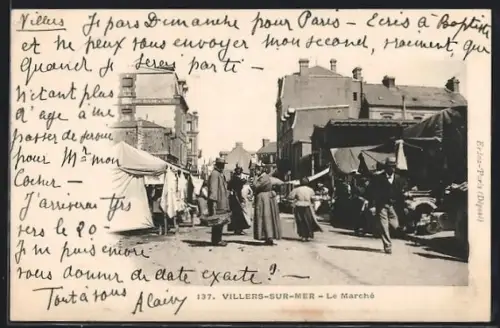 Villers
Je pars Dimanche pour Paris - Ecris à Baptiste
et ne peux vous envoyer mon second, vraiment qui
Quand Je serai parti -
N'étant plus
d'age à me
passer de
pour Mr mon
Cocher -
J'arriverai
vers le 20
Je ne puis encore
vous donner de date exacte? -
Tout à vous
137. VILLERS-SUR-MER - Le Marché
(Déposé)